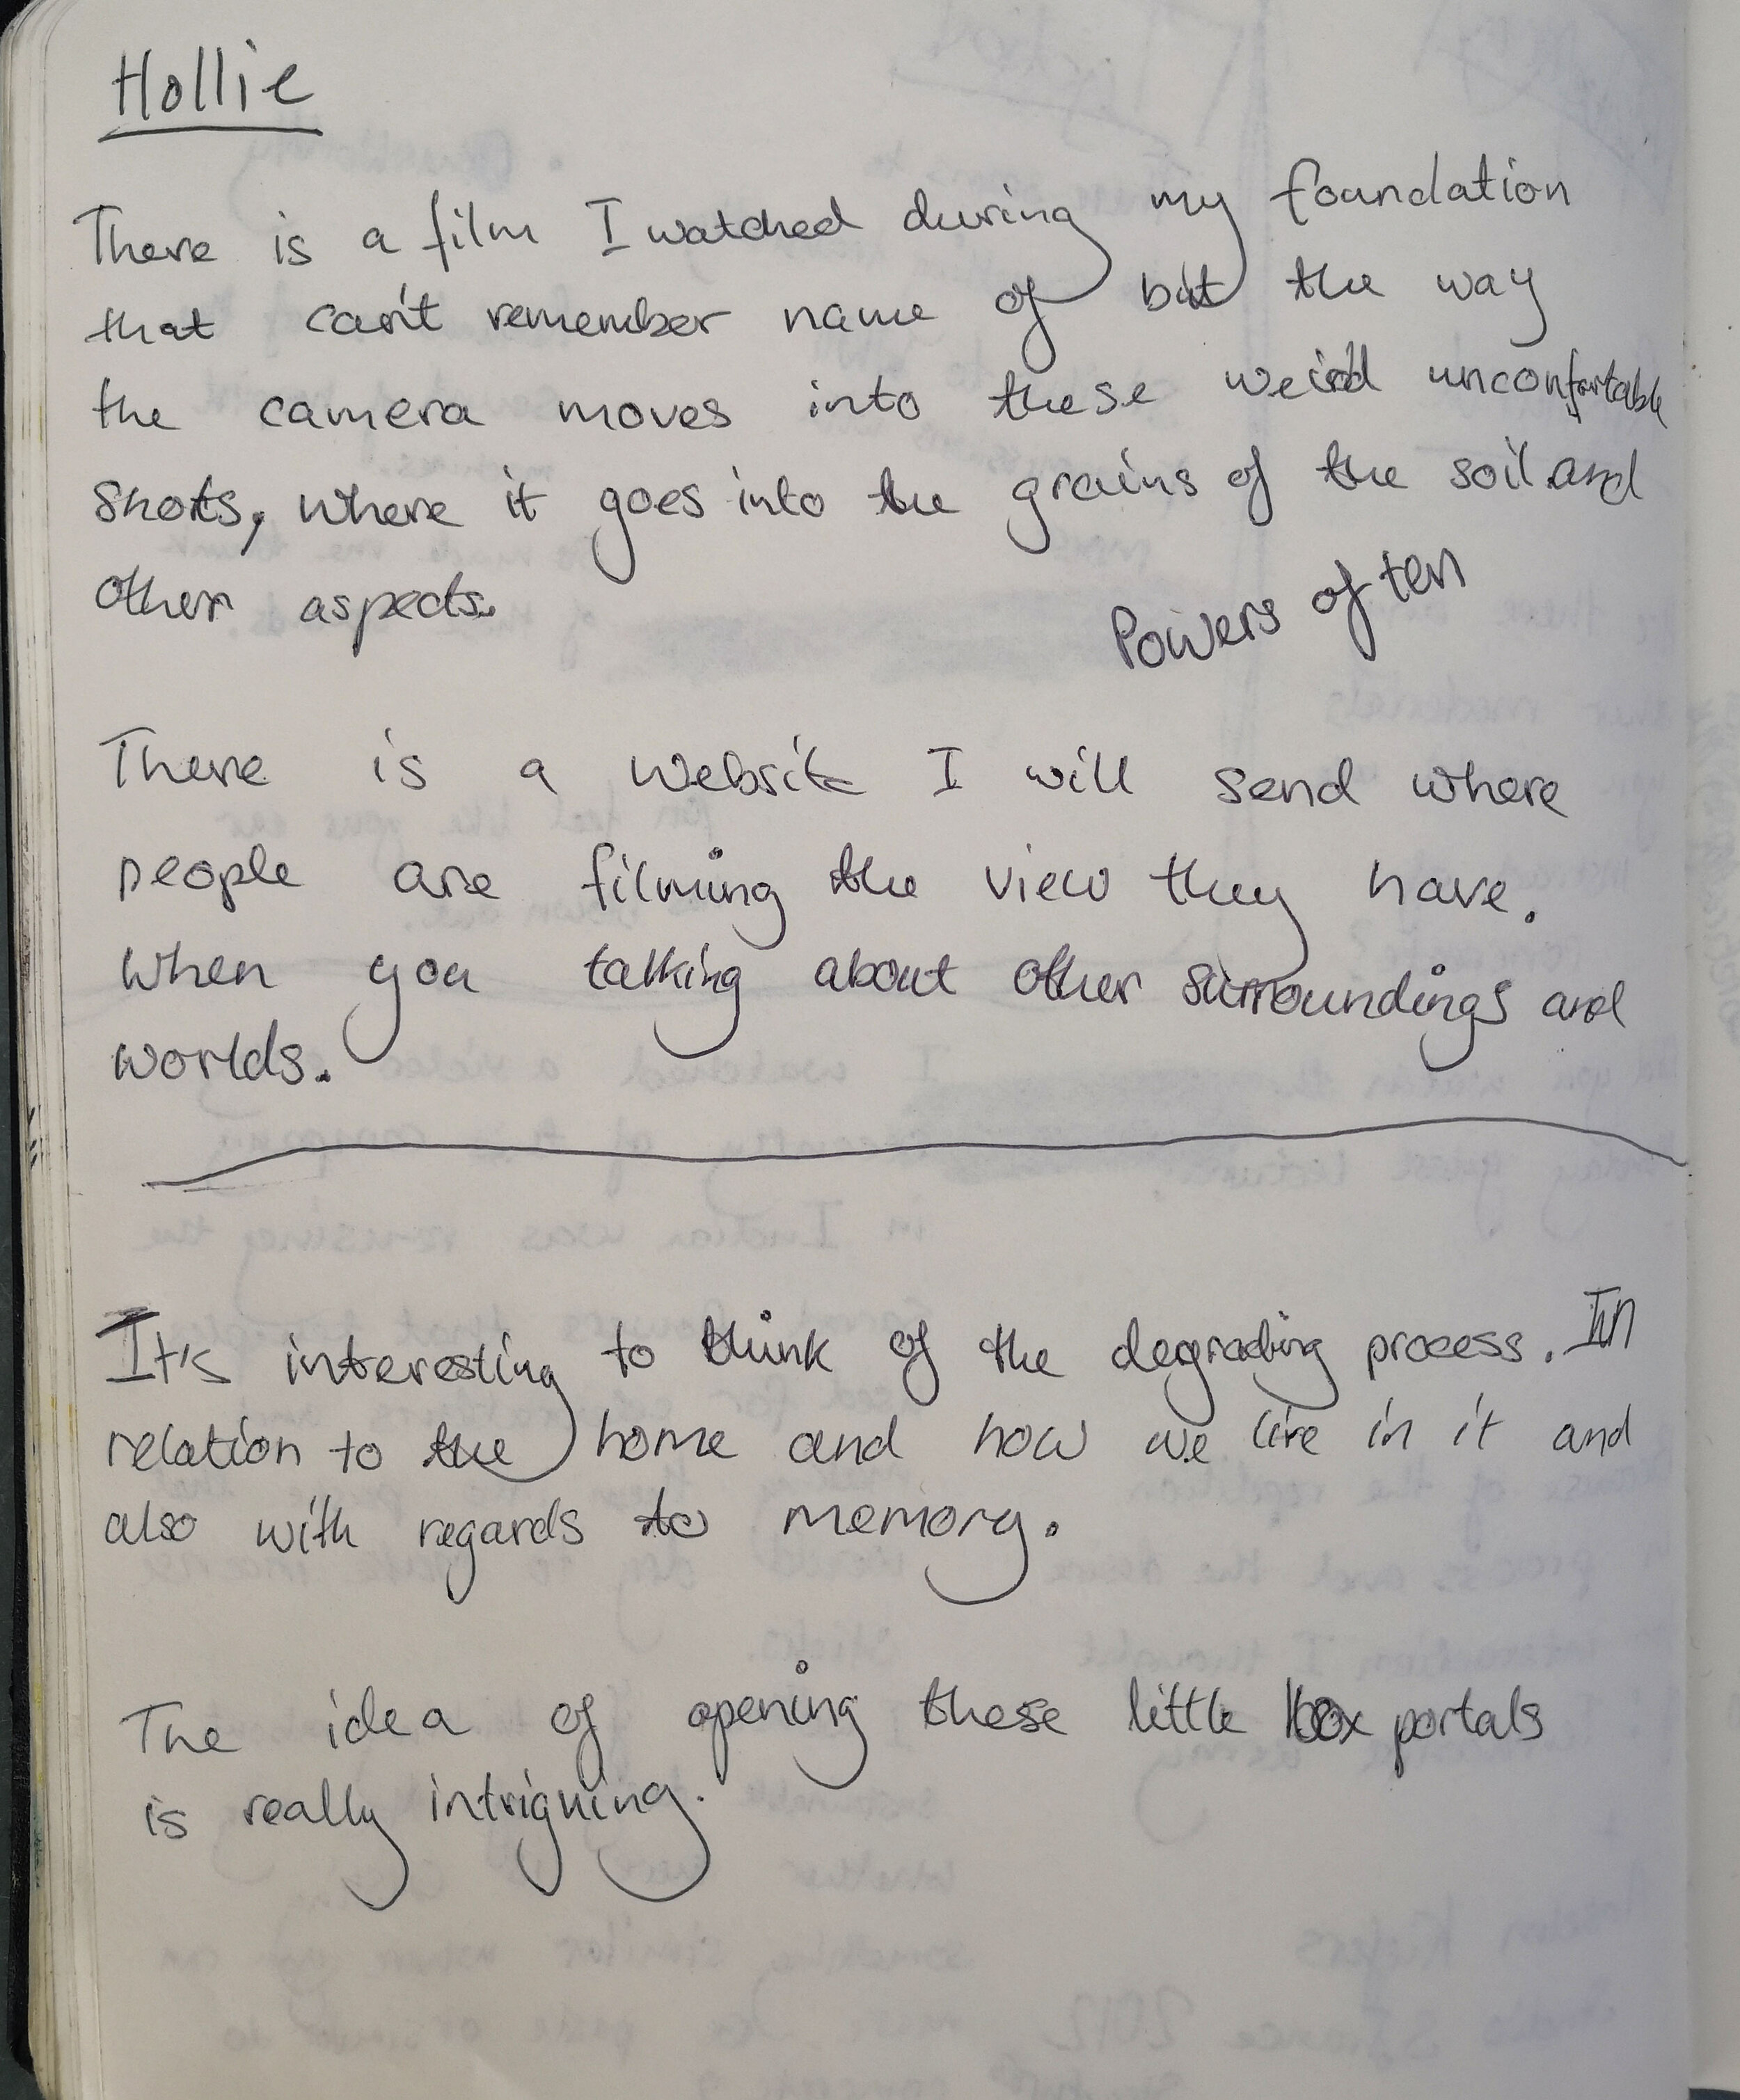 Hollie
There is a film I watched during my foundation
that can't remember name of but the way
the camera moves into these weird unconfortable
shots, where it goes into the grains of the soil and
other aspects.
Powers of ten
There is a website I will send where
people are filming the view they have.
When you talking about other surroundings and
worlds.
It's interesting to think of the degrading process. In
relation to the home and how we live in it and
also with regards to memory.
The idea of opening these little box portals
is really intriguing.